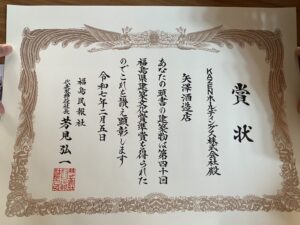 賞状
KAZENホールディングス株式会社殿
矢澤酒造店
あなたの頭書の建築物は第四十回
福島県建築文化賞準賞を得られた
のでこれを讃え顕彰します
令和七年二月五日
福島民報社
代表取締役社長 芳見弘一